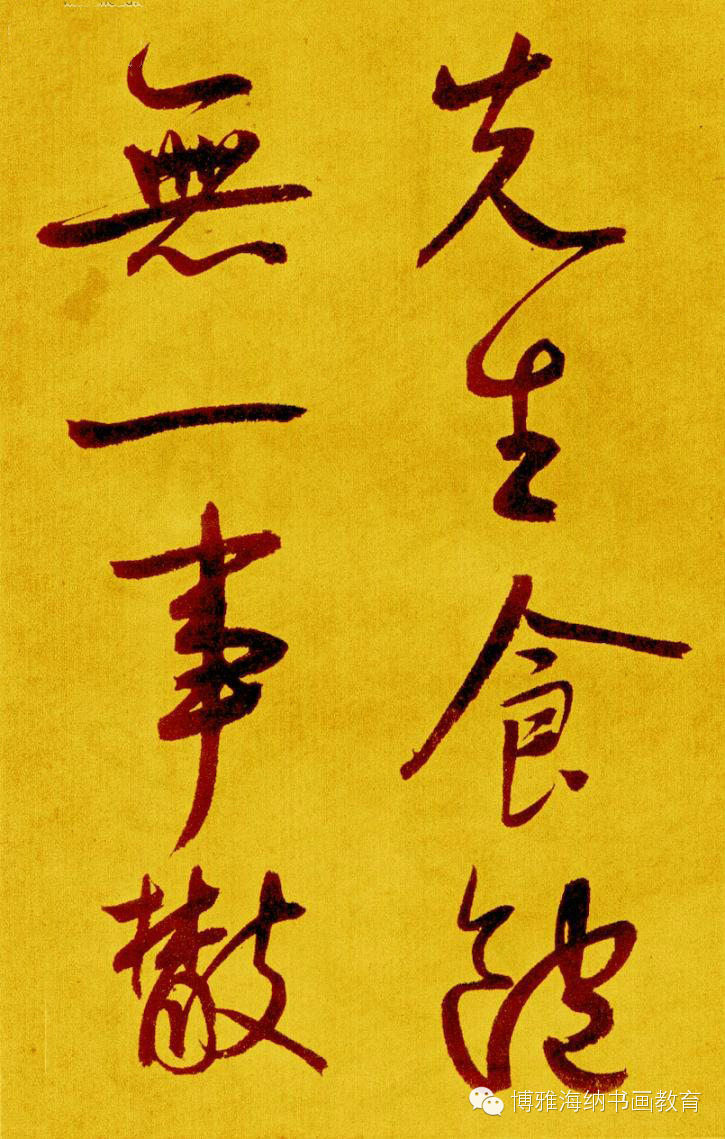 先生食飽
無一事散
博雅海纳书画教育